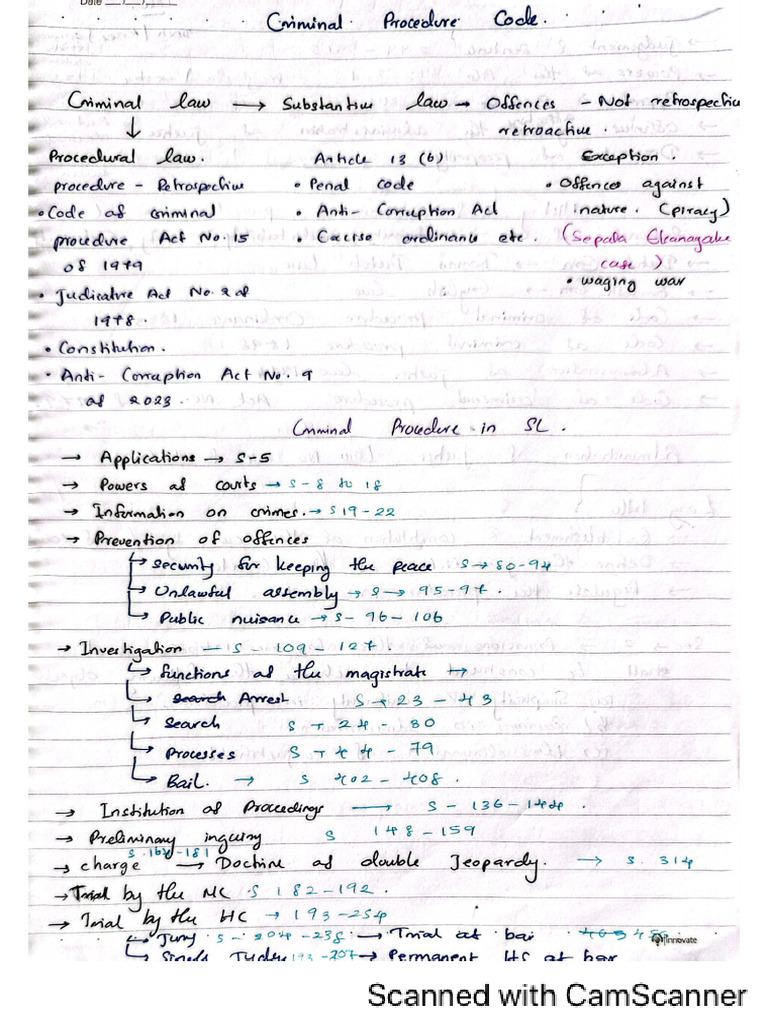 Date
Criminal Procedure Code.
Criminal law → Substantive law → Offences - Not retrospective
↓ retroactive.
Procedural law. Article 13 (6) Exception.
procedure - Retrospective • Penal code • Offences against
• Code of criminal • Anti-Corruption Act nature. (piracy)
procedure Act No. 15 • Excise ordinance etc. (Sepala Ekanayake
of 1979 case)
• Judicature Act No. 2 of • waging war
1978.
• Constitution.
• Anti-Corruption Act No. 9
of 2023.
Criminal Procedure in SL.
→ Applications → S-5
→ Powers of courts → S-8 to 18
→ Information on crimes. → S19-22
→ Prevention of offences
→ security for keeping the peace S → 80-94
→ Unlawful assembly → S → 95-97.
→ Public nuisance → S- 96-106
→ Investigation - S 109-127.
→ functions of the magistrate →
→ search Arrest S → 23-43
→ Search S → 24-80
→ Processes S → 44-79
→ Bail. → S 402-408.
→ Institution of Proceedings → S-136-144.
→ Preliminary inquiry S 148-159
S. 162-181
→ charge → Doctrine of double Jeopardy. → S. 314
→ Trial by the MC S 182-192.
→ Trial by the HC → 193-254
→ Jury S-204-238 → Trial at bar
innovate
→ Single Judge 193-207 → Permanent HC at bar
Scanned with CamScanner